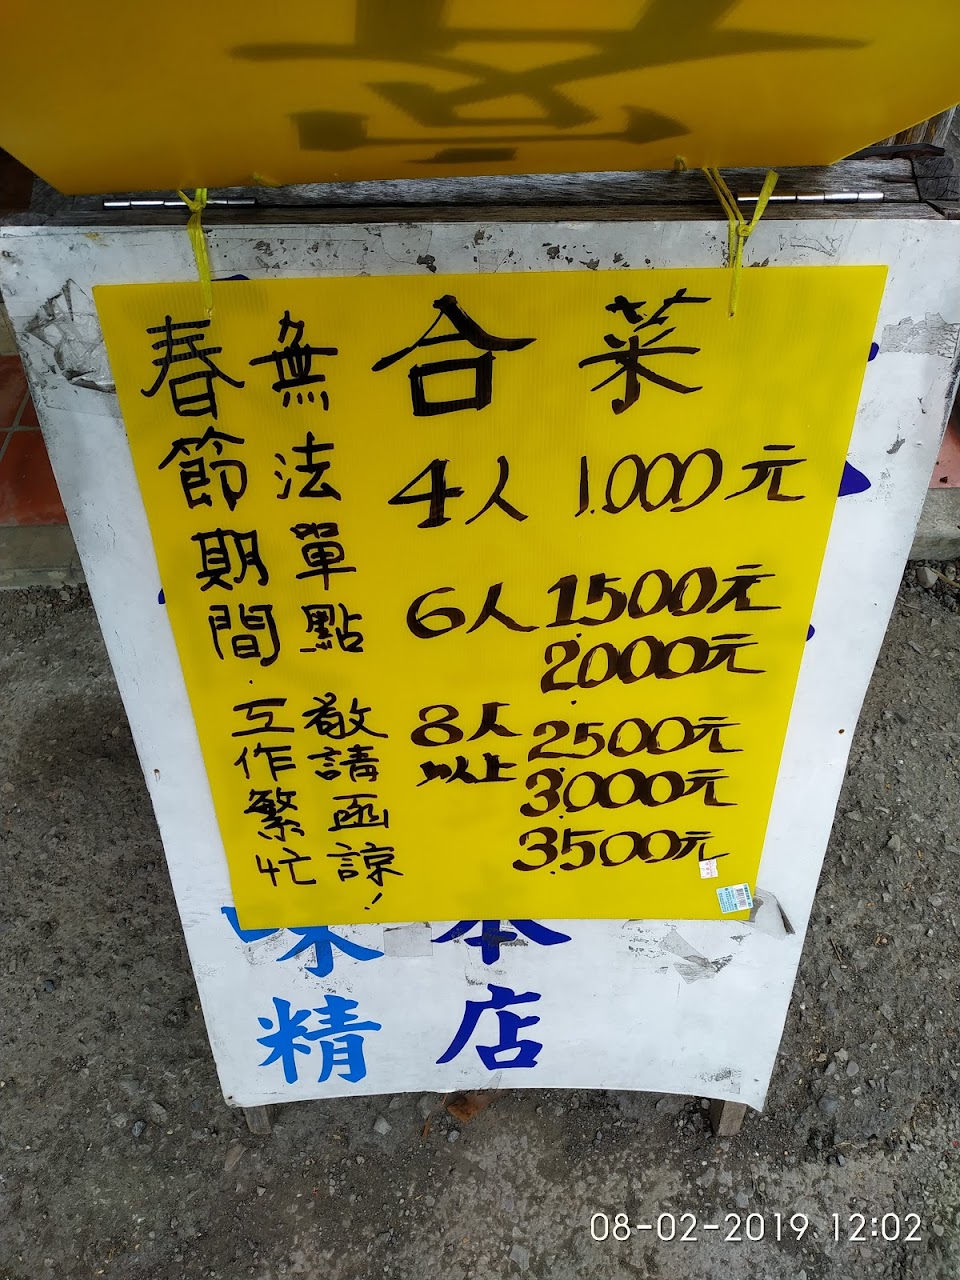 合菜
4人 1.000元
6人 1500元
2000元
8人以上 2500元
3000元
3500元
春節期間.工作繁忙
無法單點 敬請函諒!
本店
味精
08-02-2019 12:02